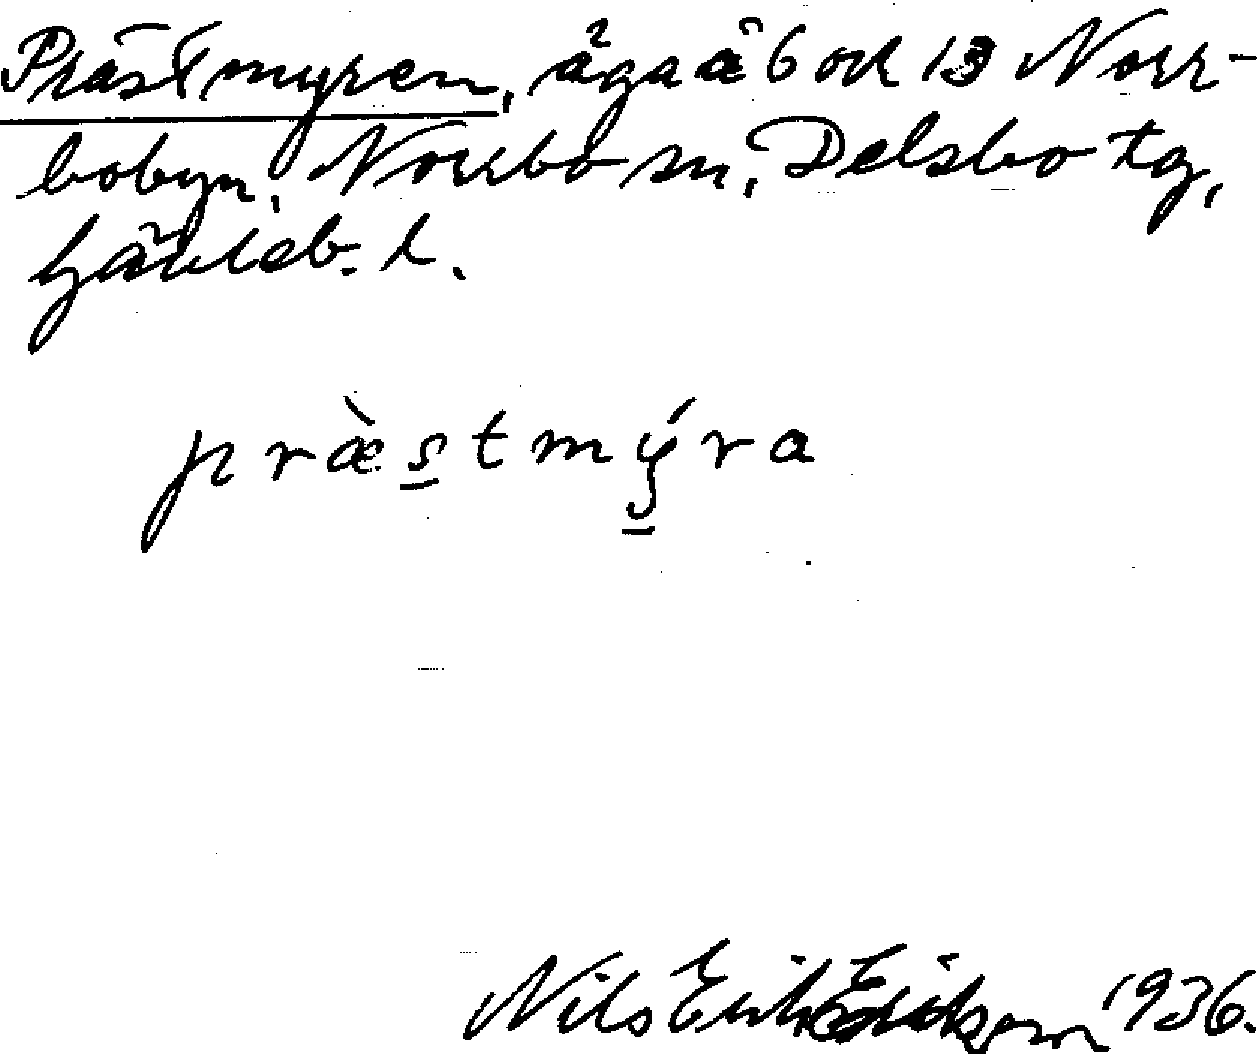 Prästmyren, äga å 6 och 13 Norr-
bobyn, Norrbo sn, Delsbo tg,
Gävleb. l.
præ̀s̲tmý̲ra
Nils Erik Eriksson 1936.